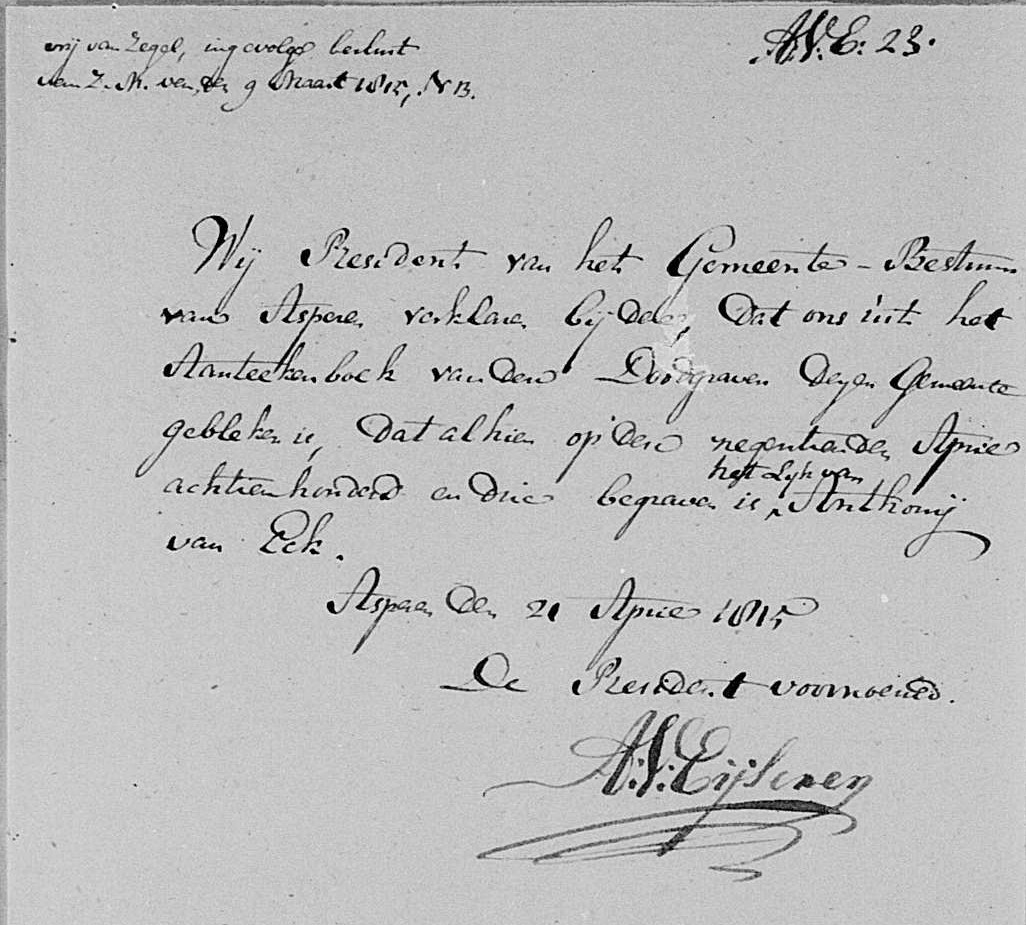 vrij van Zegel, ingevolge besluit
van Z. M. van den 9 Maart 1815, N 13.
A.V.E: 23.
Wij President van het Gemeente-Bestuur
van Asperen verklaren bij dese, dat ons uit het
Aanteekenboek van den Doodgraver dezer Gemeente
gebleken is, dat alhier op den negentienden April
achttienhonderd en drie begraven is, het Lijk van Anthonij
van Eck.
Asperen den 21 April 1815
De President voornoemd.
A:V: Eijseren